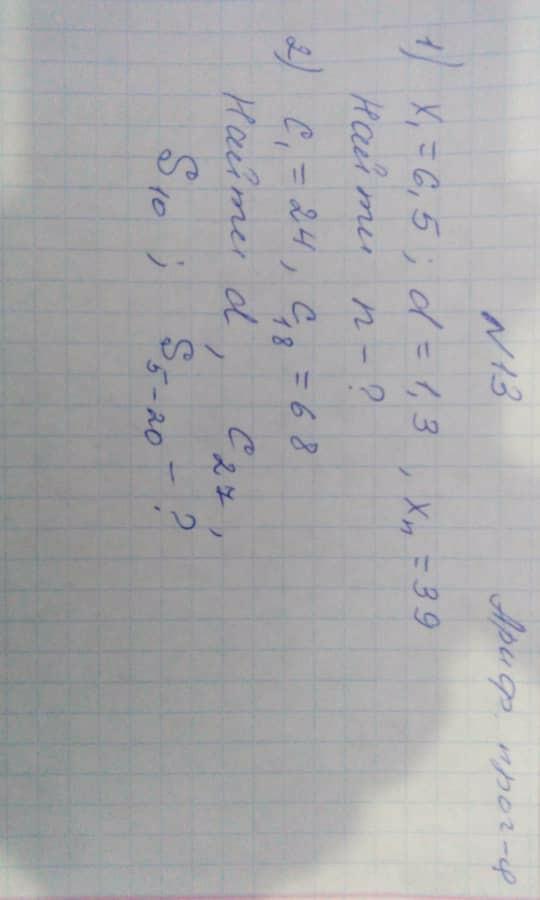 N13 Ариф. прог-я
1) x₁ = 6,5 ; d = 1,3 , xₙ = 39
Найти n - ?
2) c₁ = 24, c₁₈ = 68
Найти d, c₂₇,
S₁₀ ; S₅₋₂₀ - ?